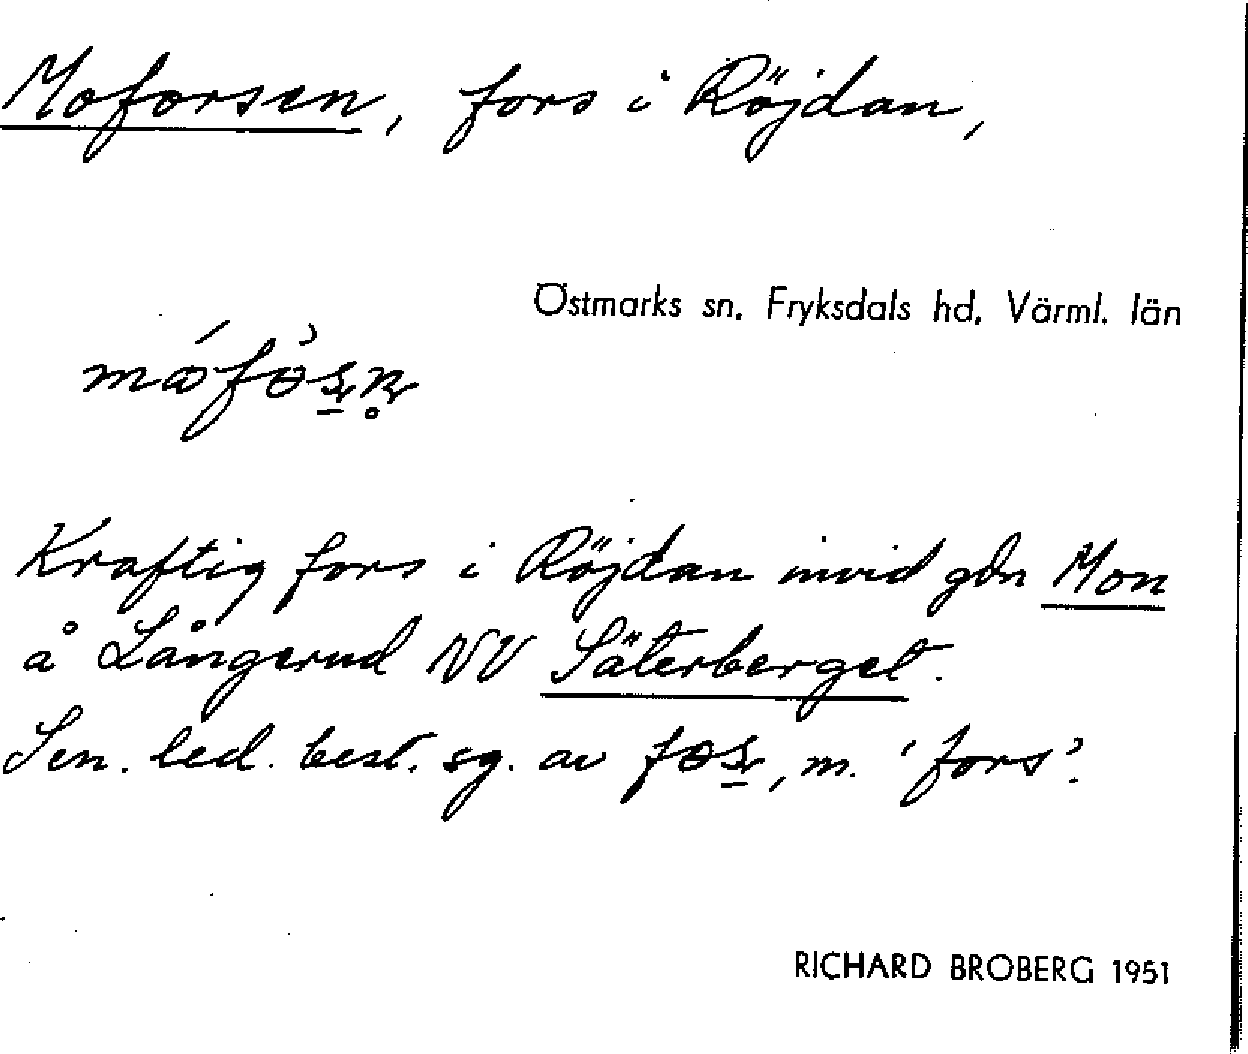 Moforsen, fors i Röjdan,
Östmarks sn. Fryksdals hd. Värml. län
Kraftig fors i Röjdan invid gdn Mon
å Långerud NV Säterberget.
Sen. led. best. sg. av , m. 'fors'.
RICHARD BROBERG 1951